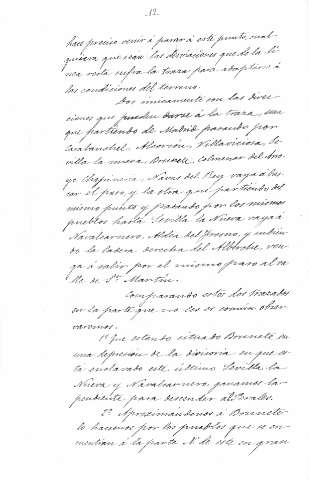 12.
hace preciso venir á parar á este punto, cual-
quiera que sean las desviaciones que de la lí-
nea recta sufra la traza para adaptarse á
las condiciones del terreno.
Dos unicamente son las direc-
ciones que pueden darse á la traza, una
que partiendo de Madrid pasando por
Carabanchel, Alcorcón, Villaviciosa, Se-
villa la nueva, Brunete, Colmenar del Arro-
yo Chapineria, Navas del Rey vaya á bus-
car el paso, y la otra que partiendo del
mismo punto y pasando por los mismos
pueblos hasta Sevilla la Nueva vaya á
Navalcarnero, Aldea del Fresno, y subien-
do la ladera derecha del Alberche, ven-
ga á salir por el mismo paso al va-
lle de Sn. Martín.
Comparando estos dos trazados
en la parte que no les es común obser-
varemos.
1º Que estando situado Brunete en
una depresion de la divisoria en que es-
ta enclavado este último Sevilla la
Nueva y Navalcarnero ganamos la
pendiente para descender al Perales.
2º Aproximándonos á Brunete
lo hacemos por los pueblos que se en-
cuentran á la parte N. de este en gran